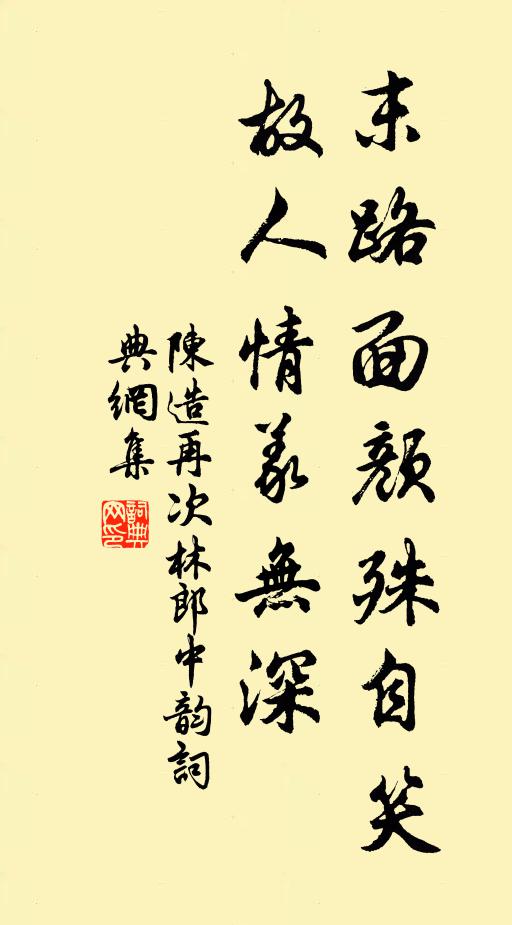 末路面顏殊自笑
故人情義無深
陳造再次林郎中韵詞
典網集
詞典网印